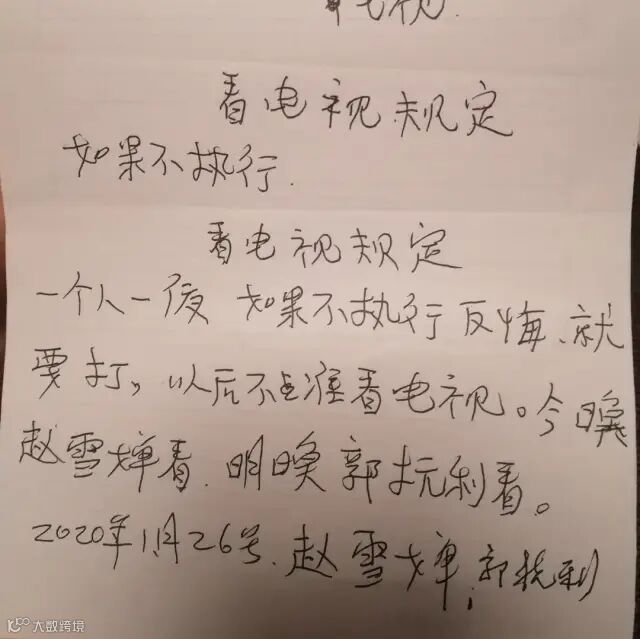 看电视规定
如果不执行.
看电视规定
一个人一夜 如果不执行反悔、就
要打,以后不准看电视。今晚
赵雪婵看.明晚郭抗利看。
2020年1月26号.赵雪婵,郭抗利
大数跨境